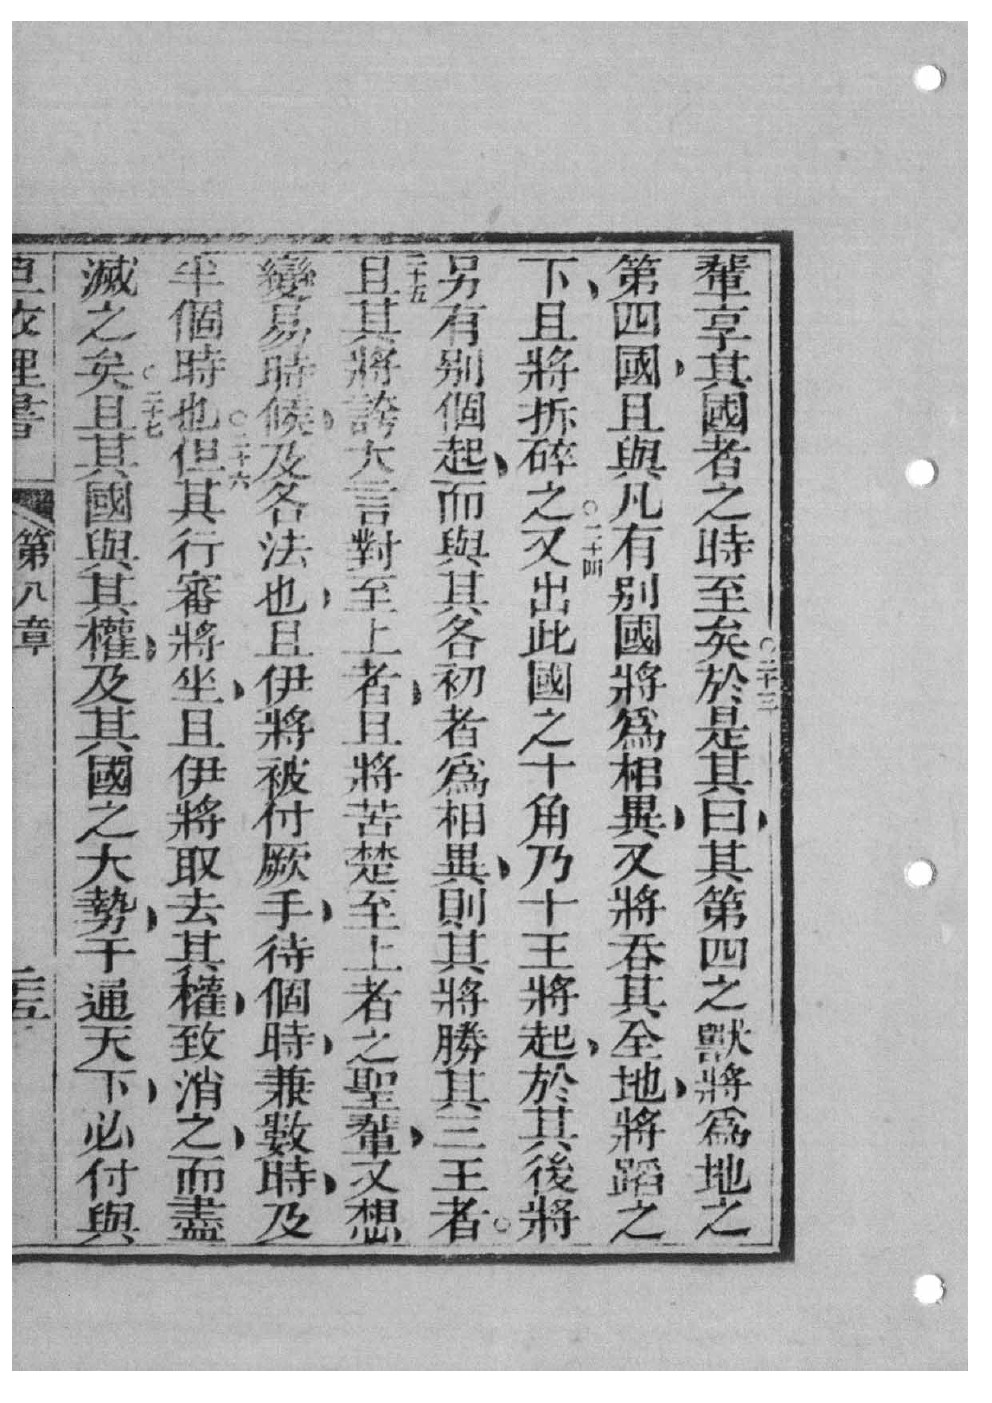 輩享其國者之時至矣○二十三於是其曰其第四之獸將爲地之
第四國且與凡有别國將爲相異又將吞其全地將蹈之
下且將拆碎之○二十四又出此國之十角乃十王將起於其後將
另有别個起而與其各初者爲相異則其將勝其三王者○
二十五且其將誇大言對至上者且將苦楚至上者之聖輩又想
變易時候及各法也且伊將被付厥手待個時兼數時及
半個時也○二十六但其行審將坐且伊將取去其權致消之而盡
滅之矣○二十七且其國與其權及其國之大勢于通天下必付與
第八章